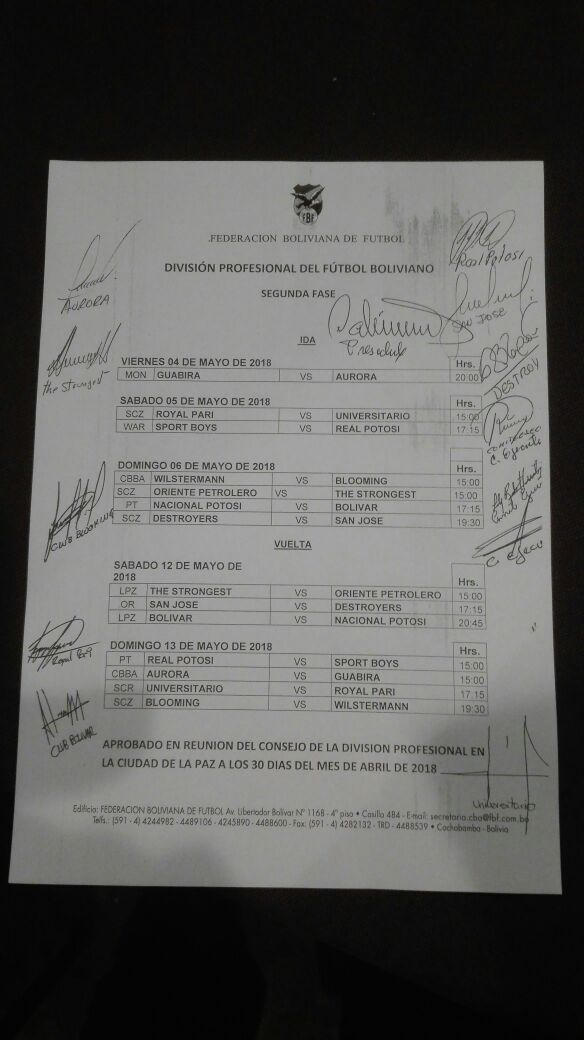 FBF
.FEDERACION BOLIVIANA DE FUTBOL
DIVISIÓN PROFESIONAL DEL FÚTBOL BOLIVIANO
SEGUNDA FASE
Real Potosi
AURORA
SAN JOSE
Presidente
IDA
The Strongest
VIERNES 04 DE MAYO DE 2018 Hrs.
MON GUABIRA VS AURORA 20:00
DESTROY
SABADO 05 DE MAYO DE 2018 Hrs.
SCZ ROYAL PARI VS UNIVERSITARIO 15:00
WAR SPORT BOYS VS REAL POTOSI 17:15
DOMINGO 06 DE MAYO DE 2018 Hrs.
CBBA WILSTERMANN VS BLOOMING 15:00
SCZ ORIENTE PETROLERO VS THE STRONGEST 15:00
PT NACIONAL POTOSI VS BOLIVAR 17:15
SCZ DESTROYERS VS SAN JOSE 19:30
CLUB BLOOMING
VUELTA
SABADO 12 DE MAYO DE
2018 Hrs.
LPZ THE STRONGEST VS ORIENTE PETROLERO 15:00
OR SAN JOSE VS DESTROYERS 17:15
LPZ BOLIVAR VS NACIONAL POTOSI 20:45
DOMINGO 13 DE MAYO DE 2018 Hrs.
PT REAL POTOSI VS SPORT BOYS 15:00
CBBA AURORA VS GUABIRA 15:00
SCR UNIVERSITARIO VS ROYAL PARI 17:15
SCZ BLOOMING VS WILSTERMANN 19:30
CLUB BOLIVAR
APROBADO EN REUNION DEL CONSEJO DE LA DIVISION PROFESIONAL EN
LA CIUDAD DE LA PAZ A LOS 30 DIAS DEL MES DE ABRIL DE 2018
Universitario
Edificio: FEDERACION BOLIVIANA DE FUTBOL Av. Libertador Bolívar Nº 1168 - 4º piso • Casilla 484 - E-mail: secretaria.cba@fbf.com.bo
Telfs.: (591 - 4) 4244982 - 4489106 - 4245890 - 4488600 - Fax: (591 - 4) 4282132 - TRD - 4488539 • Cochabamba - Bolivia